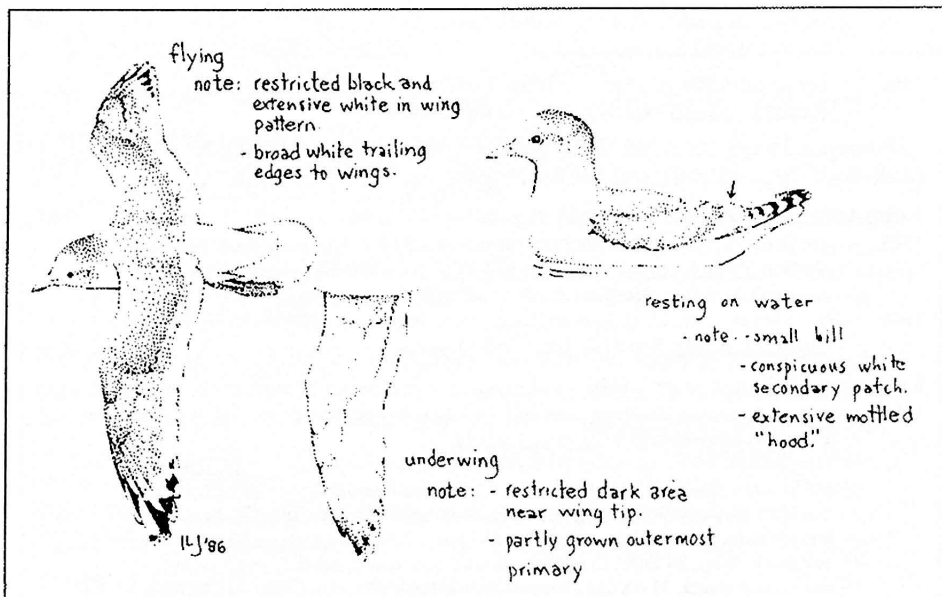 flying
note: restricted black and
extensive white in wing
pattern.
- broad white trailing
edges to wings.
resting on water
- note - small bill
- conspicuous white
secondary patch.
- extensive mottled
"hood."
underwing
note: - restricted dark area
near wing tip.
- partly grown outermost
primary
ILJ '86